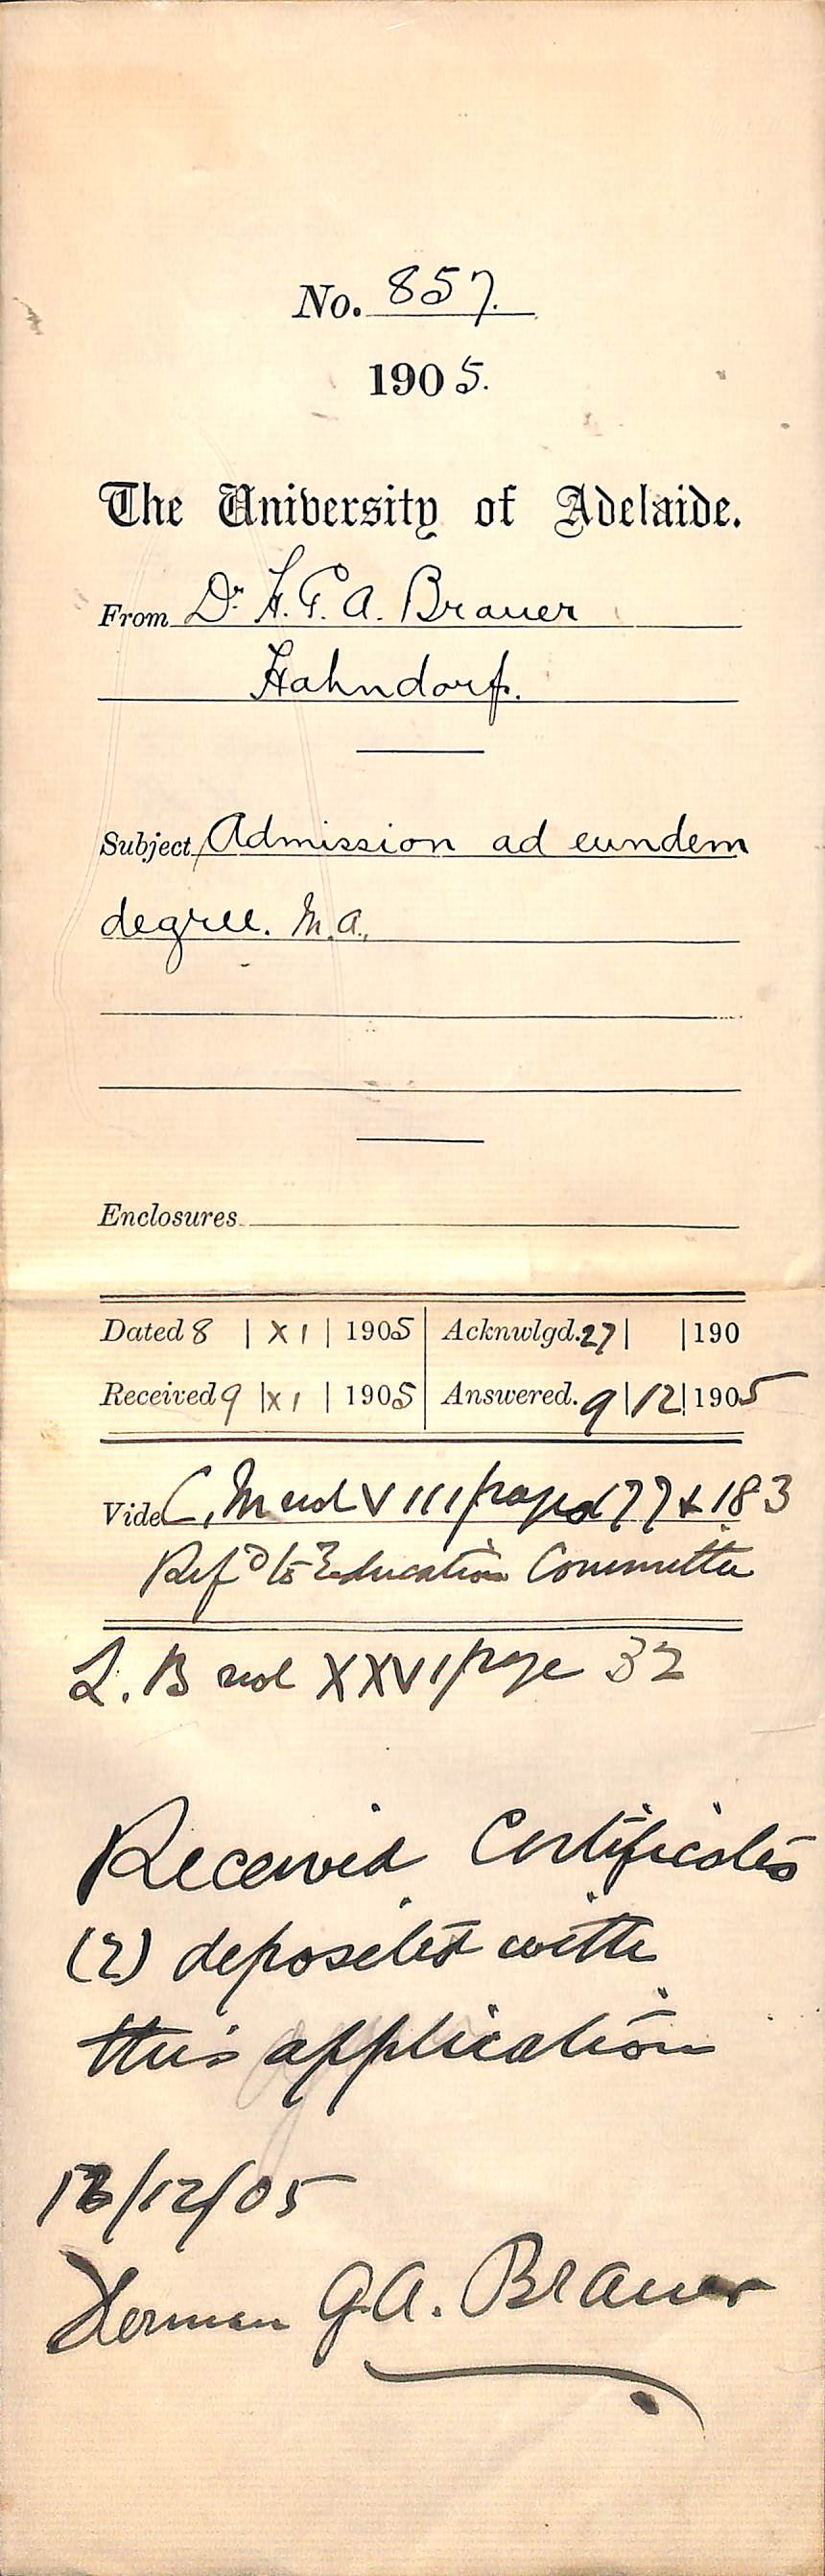 No. 857.
1905.
The University of Adelaide.
From Dr. H. G. A. Brauer
Hahndorf.
Subject Admission ad eundem
degree. M.A.,
Enclosures
Dated 8 | XI | 1905 | Acknwlgd. 27 | | 190
Received 9 | XI | 1905 | Answered. 9 | 12 | 1905
Vide C, M vol VIII pages 177 & 183
Refd to Education Committee
L. B vol XXVI page 32
Received Certificates
(2) deposited with
this application
/12/05
Herman G.A. Brauer